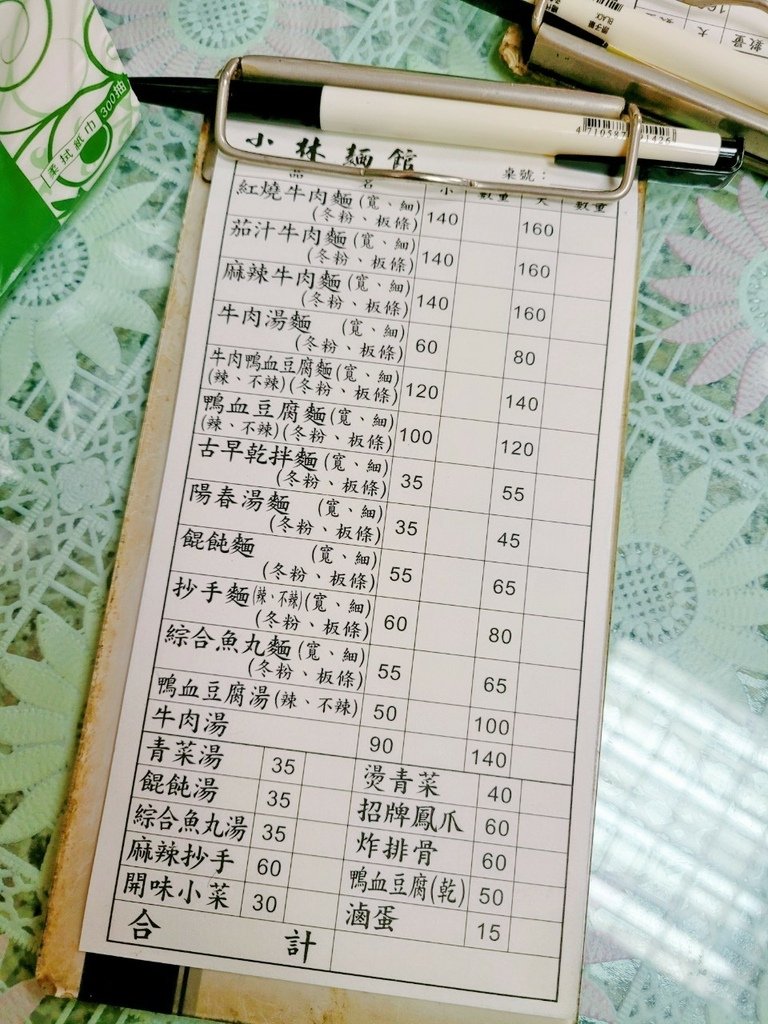 柔拭紙巾 300抽
4 710587 1426
BLACK
大
數量
小林麵館 桌號：
品名 小 數量 大 數量
紅燒牛肉麵(寬、細)
(冬粉、板條) 140 160
茄汁牛肉麵(寬、細)
(冬粉、板條) 140 160
麻辣牛肉麵(寬、細)
(冬粉、板條) 140 160
牛肉湯麵 (寬、細)
(冬粉、板條) 60 80
牛肉鴨血豆腐麵(寬、細)
(辣、不辣)(冬粉、板條) 120 140
鴨血豆腐麵(寬、細)
(辣、不辣)(冬粉、板條) 100 120
古早乾拌麵(寬、細)
(冬粉、板條) 35 55
陽春湯麵 (寬、細)
(冬粉、板條) 35 45
餛飩麵 (寬、細)
(冬粉、板條) 55 65
抄手麵(辣、不辣)(寬、細)
(冬粉、板條) 60 80
綜合魚丸麵(寬、細)
(冬粉、板條) 55 65
鴨血豆腐湯(辣、不辣) 50 100
牛肉湯 90 140
青菜湯 35 燙青菜 40
餛飩湯 35 招牌鳳爪 60
綜合魚丸湯 35 炸排骨 60
麻辣抄手 60 鴨血豆腐(乾) 50
開味小菜 30 滷蛋 15
合計